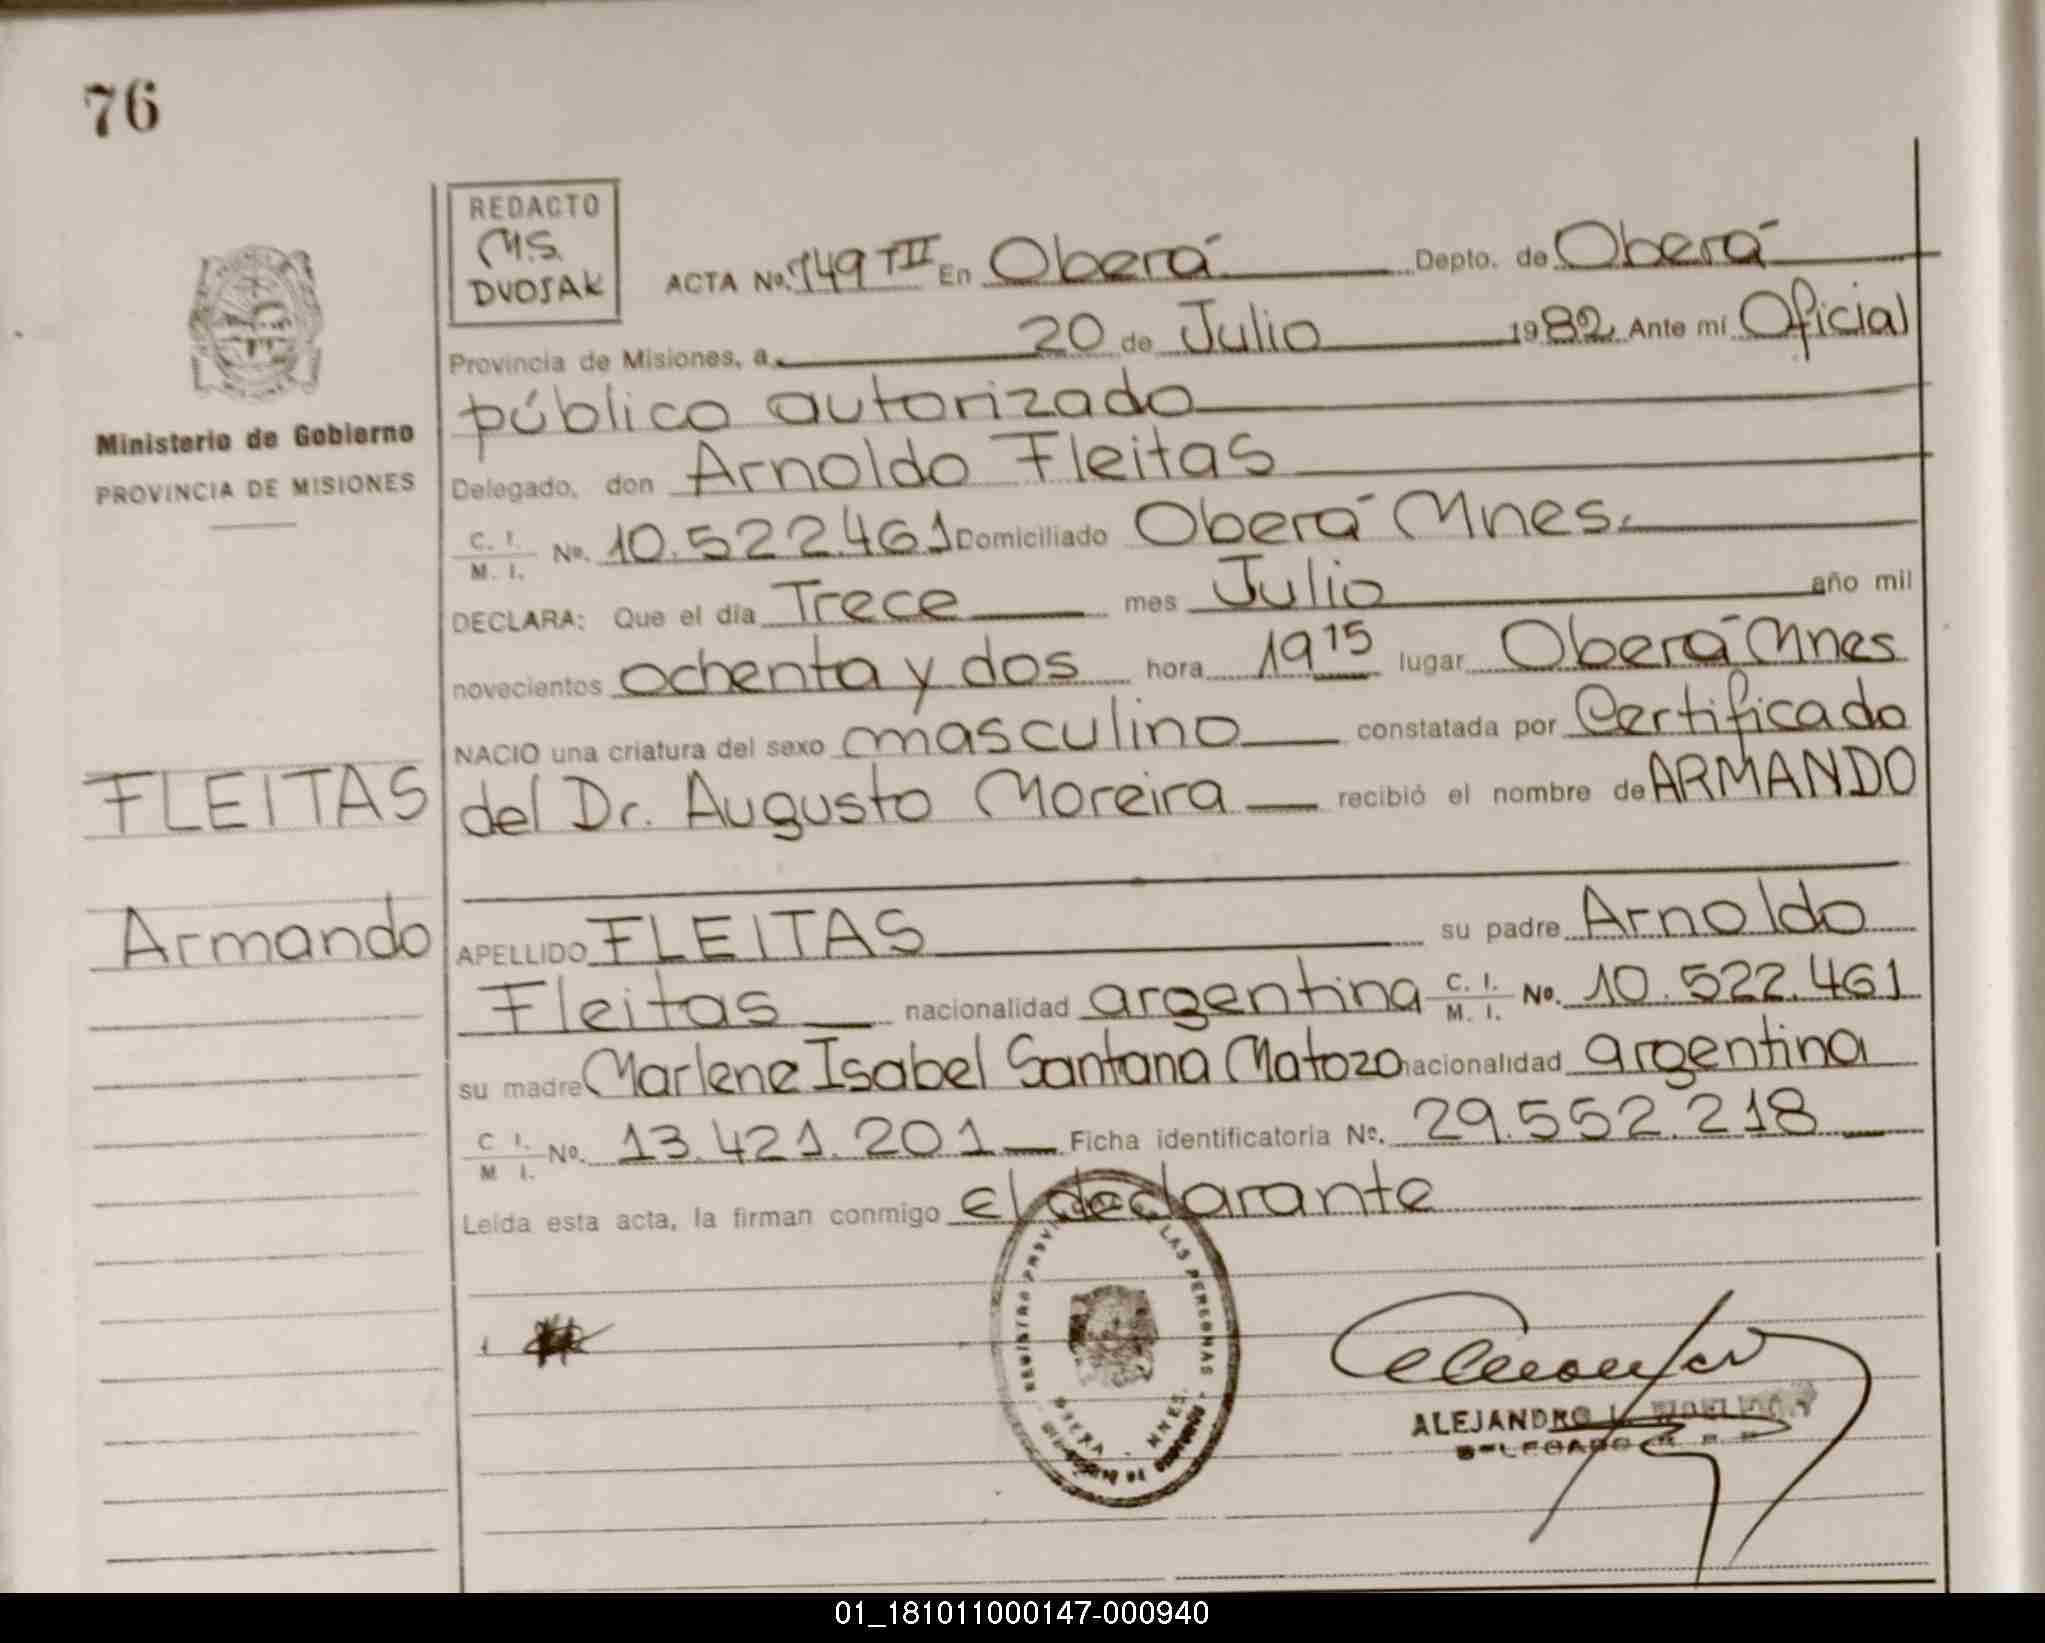 76
REDACTO
M.S.
DVOSAK
ACTA No. 749 TII En Oberá Depto. de Oberá
Provincia de Misiones, a 20 de Julio 1982 Ante mí Oficial
público autorizado
Ministerio de Gobierno
PROVINCIA DE MISIONES
Delegado, don Arnoldo Fleitas
C. I. M. I. No. 10.522.461 Domiciliado Oberá Mnes.
DECLARA: Que el día Trece mes Julio año mil
novecientos ochenta y dos hora 19 15 lugar Oberá Mnes
NACIO una criatura del sexo masculino constatada por Certificado
FLEITAS
del Dr. Augusto Moreira recibió el nombre de ARMANDO
Armando
APELLIDO FLEITAS su padre Arnoldo
Fleitas nacionalidad argentina C. I. M. I. No. 10.522.461
su madre Marlene Isabel Santana Matozo nacionalidad argentina
C I. M I. No. 13.421.201 Ficha identificatoria No. 29.552.218
Leída esta acta, la firman conmigo el declarante
LAS PERSONAS
OBERA - MNES.
ALEJANDRO
DELEGADO
01_181011000147-000940